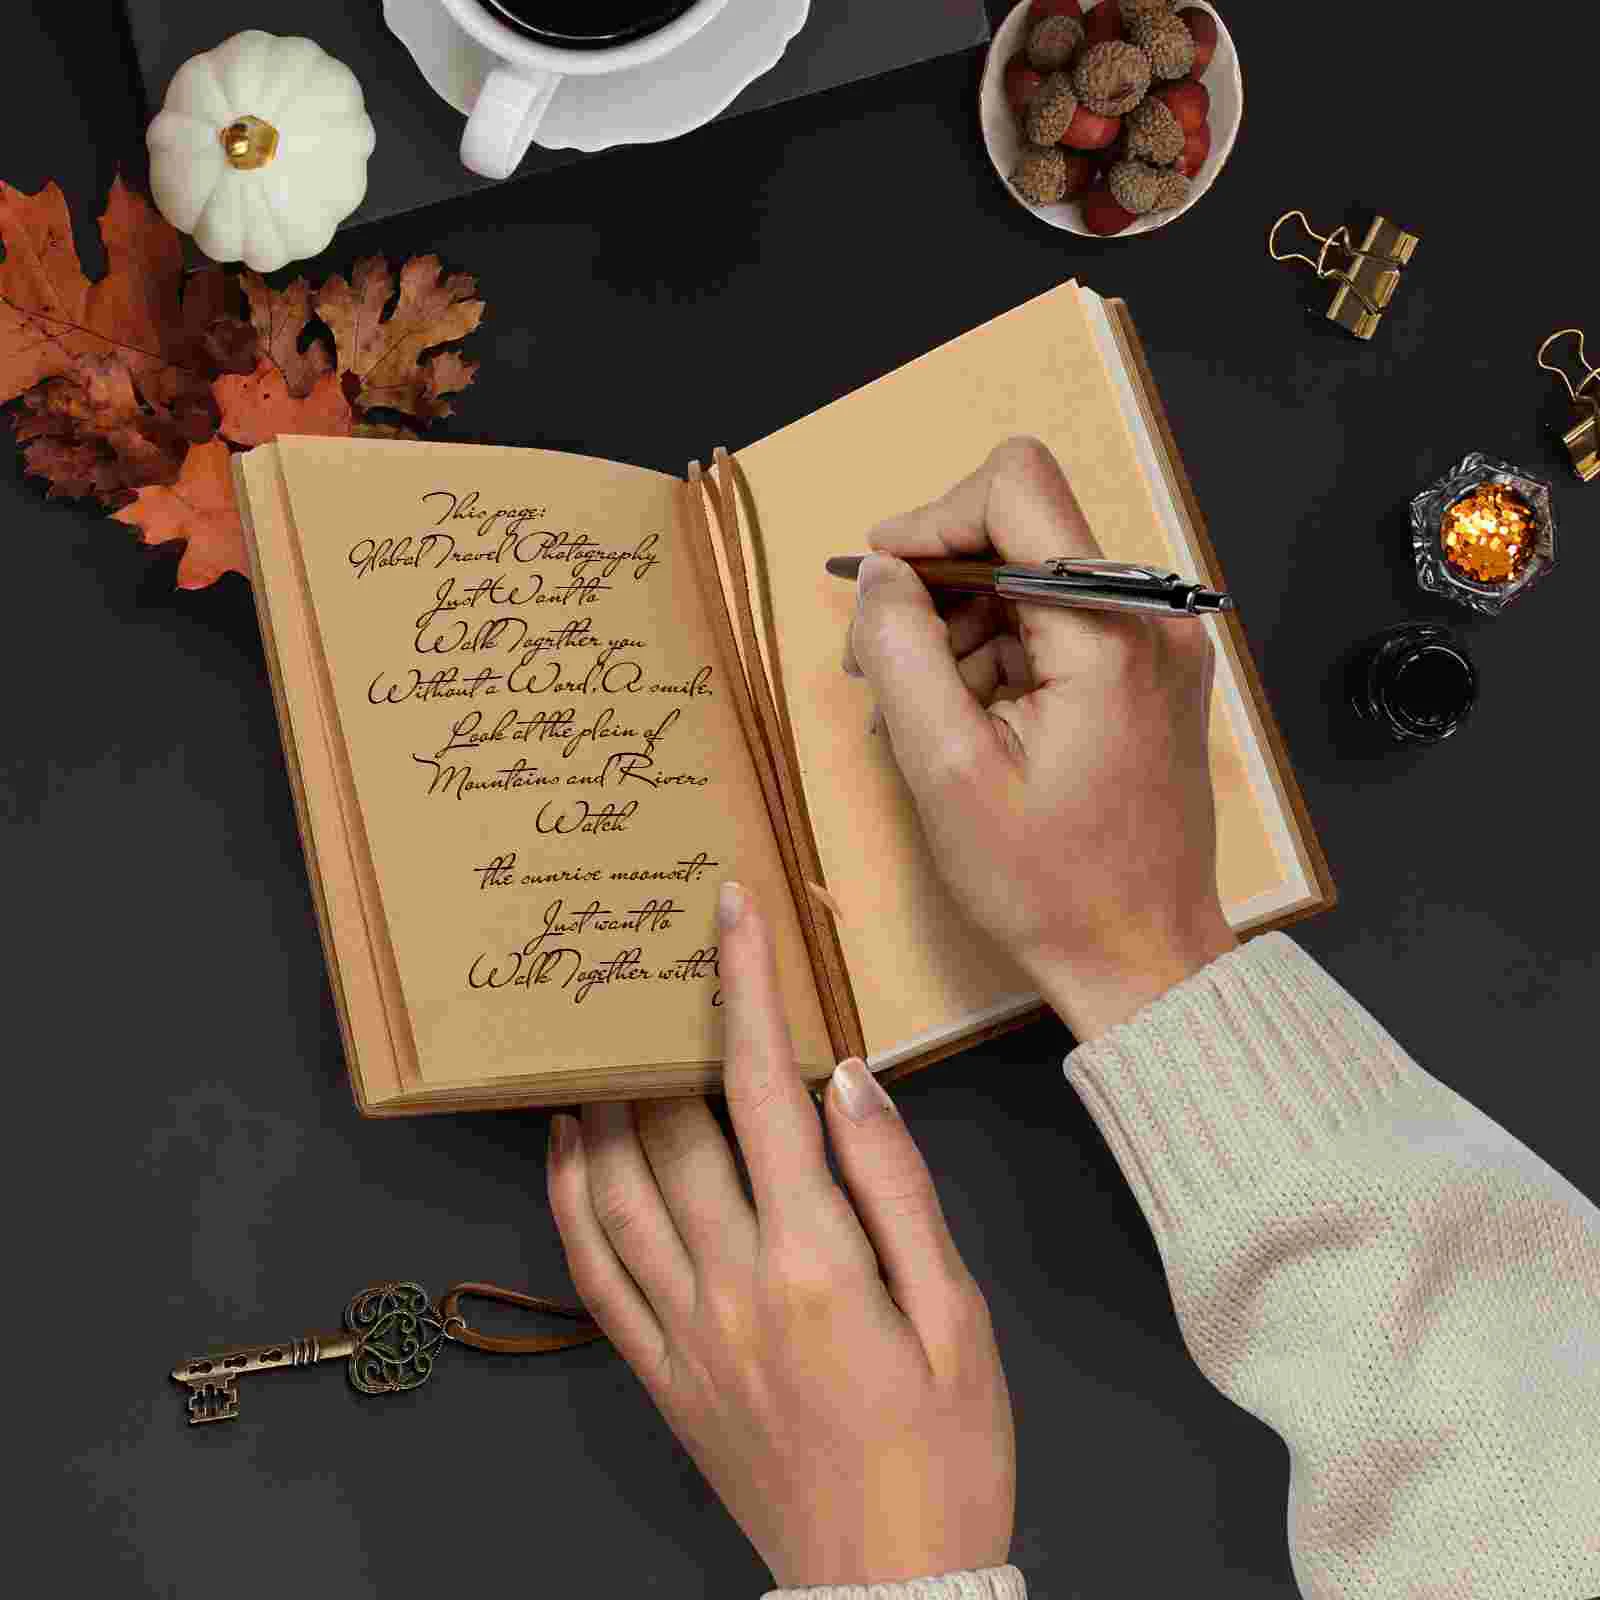 This page:
Global Travel Photography
Just Want to
Walk Togrther you
Without a Word, A smile,
Look at the plain of
Mountains and Rivers
Watch
the sunrise moonset:
Just want to
Walk Together with